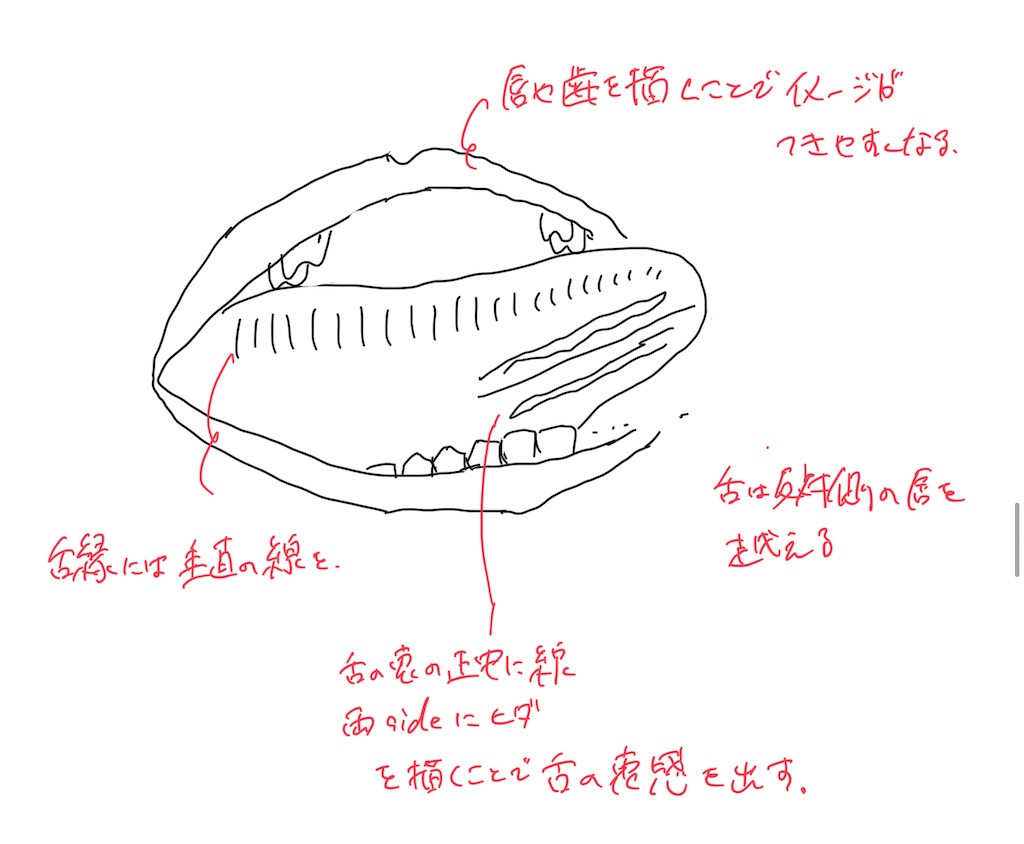 唇や歯を描くことでイメージが
つきやすくなる.
舌は反対側の唇を
越える
舌縁には垂直の線を.
舌の裏の正中に線
両sideにヒダ
を描くことで舌の裏感を出す.